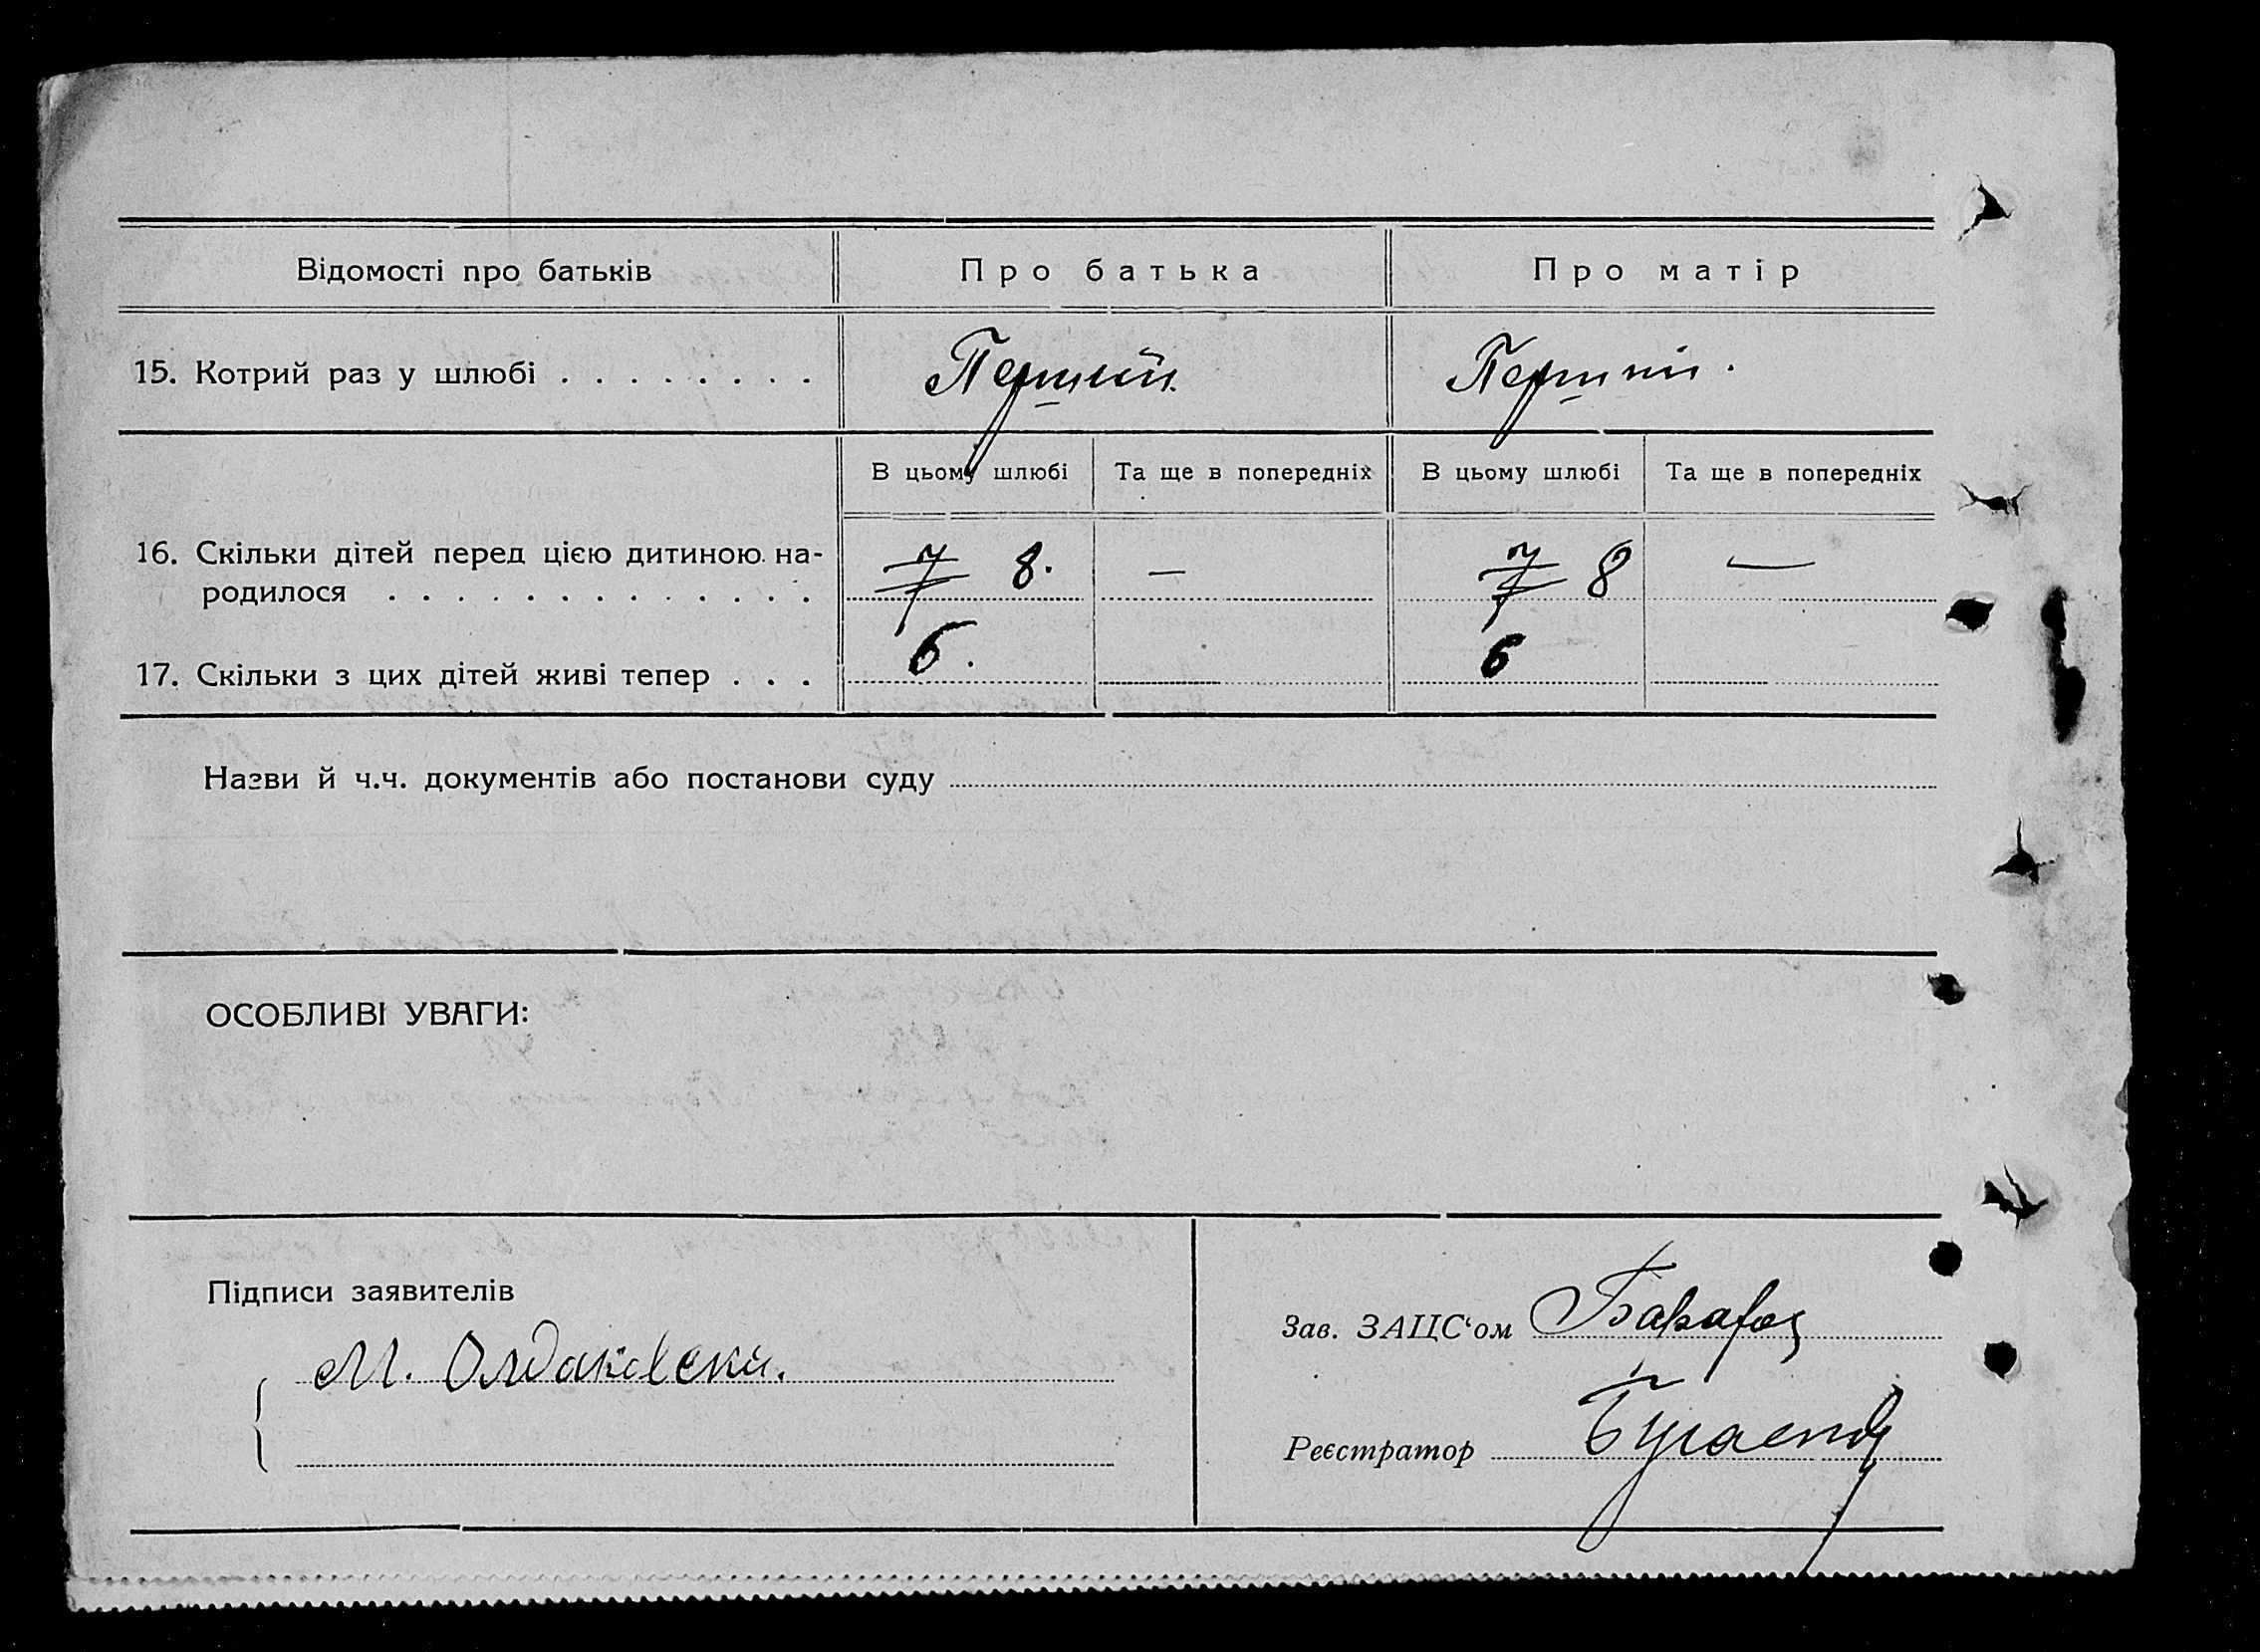 Відомості про батьків
Про батька
Про матір
15. Котрий раз у шлюбі . . . . . . . .
Перший.
Перший.
В цьому шлюбі
Та ще в попередніх
В цьому шлюбі
Та ще в попередніх
16. Скільки дітей перед цією дитиною на-
родилося . . . . . . . . . . . . .
7 8.
—
7 8
—
17. Скільки з цих дітей живі тепер . . .
6.
6
Назви й ч.ч. документів або постанови суду
ОСОБЛИВІ УВАГИ:
Підписи заявителів
М.
Зав. ЗАЦС‘ом
Реєстратор